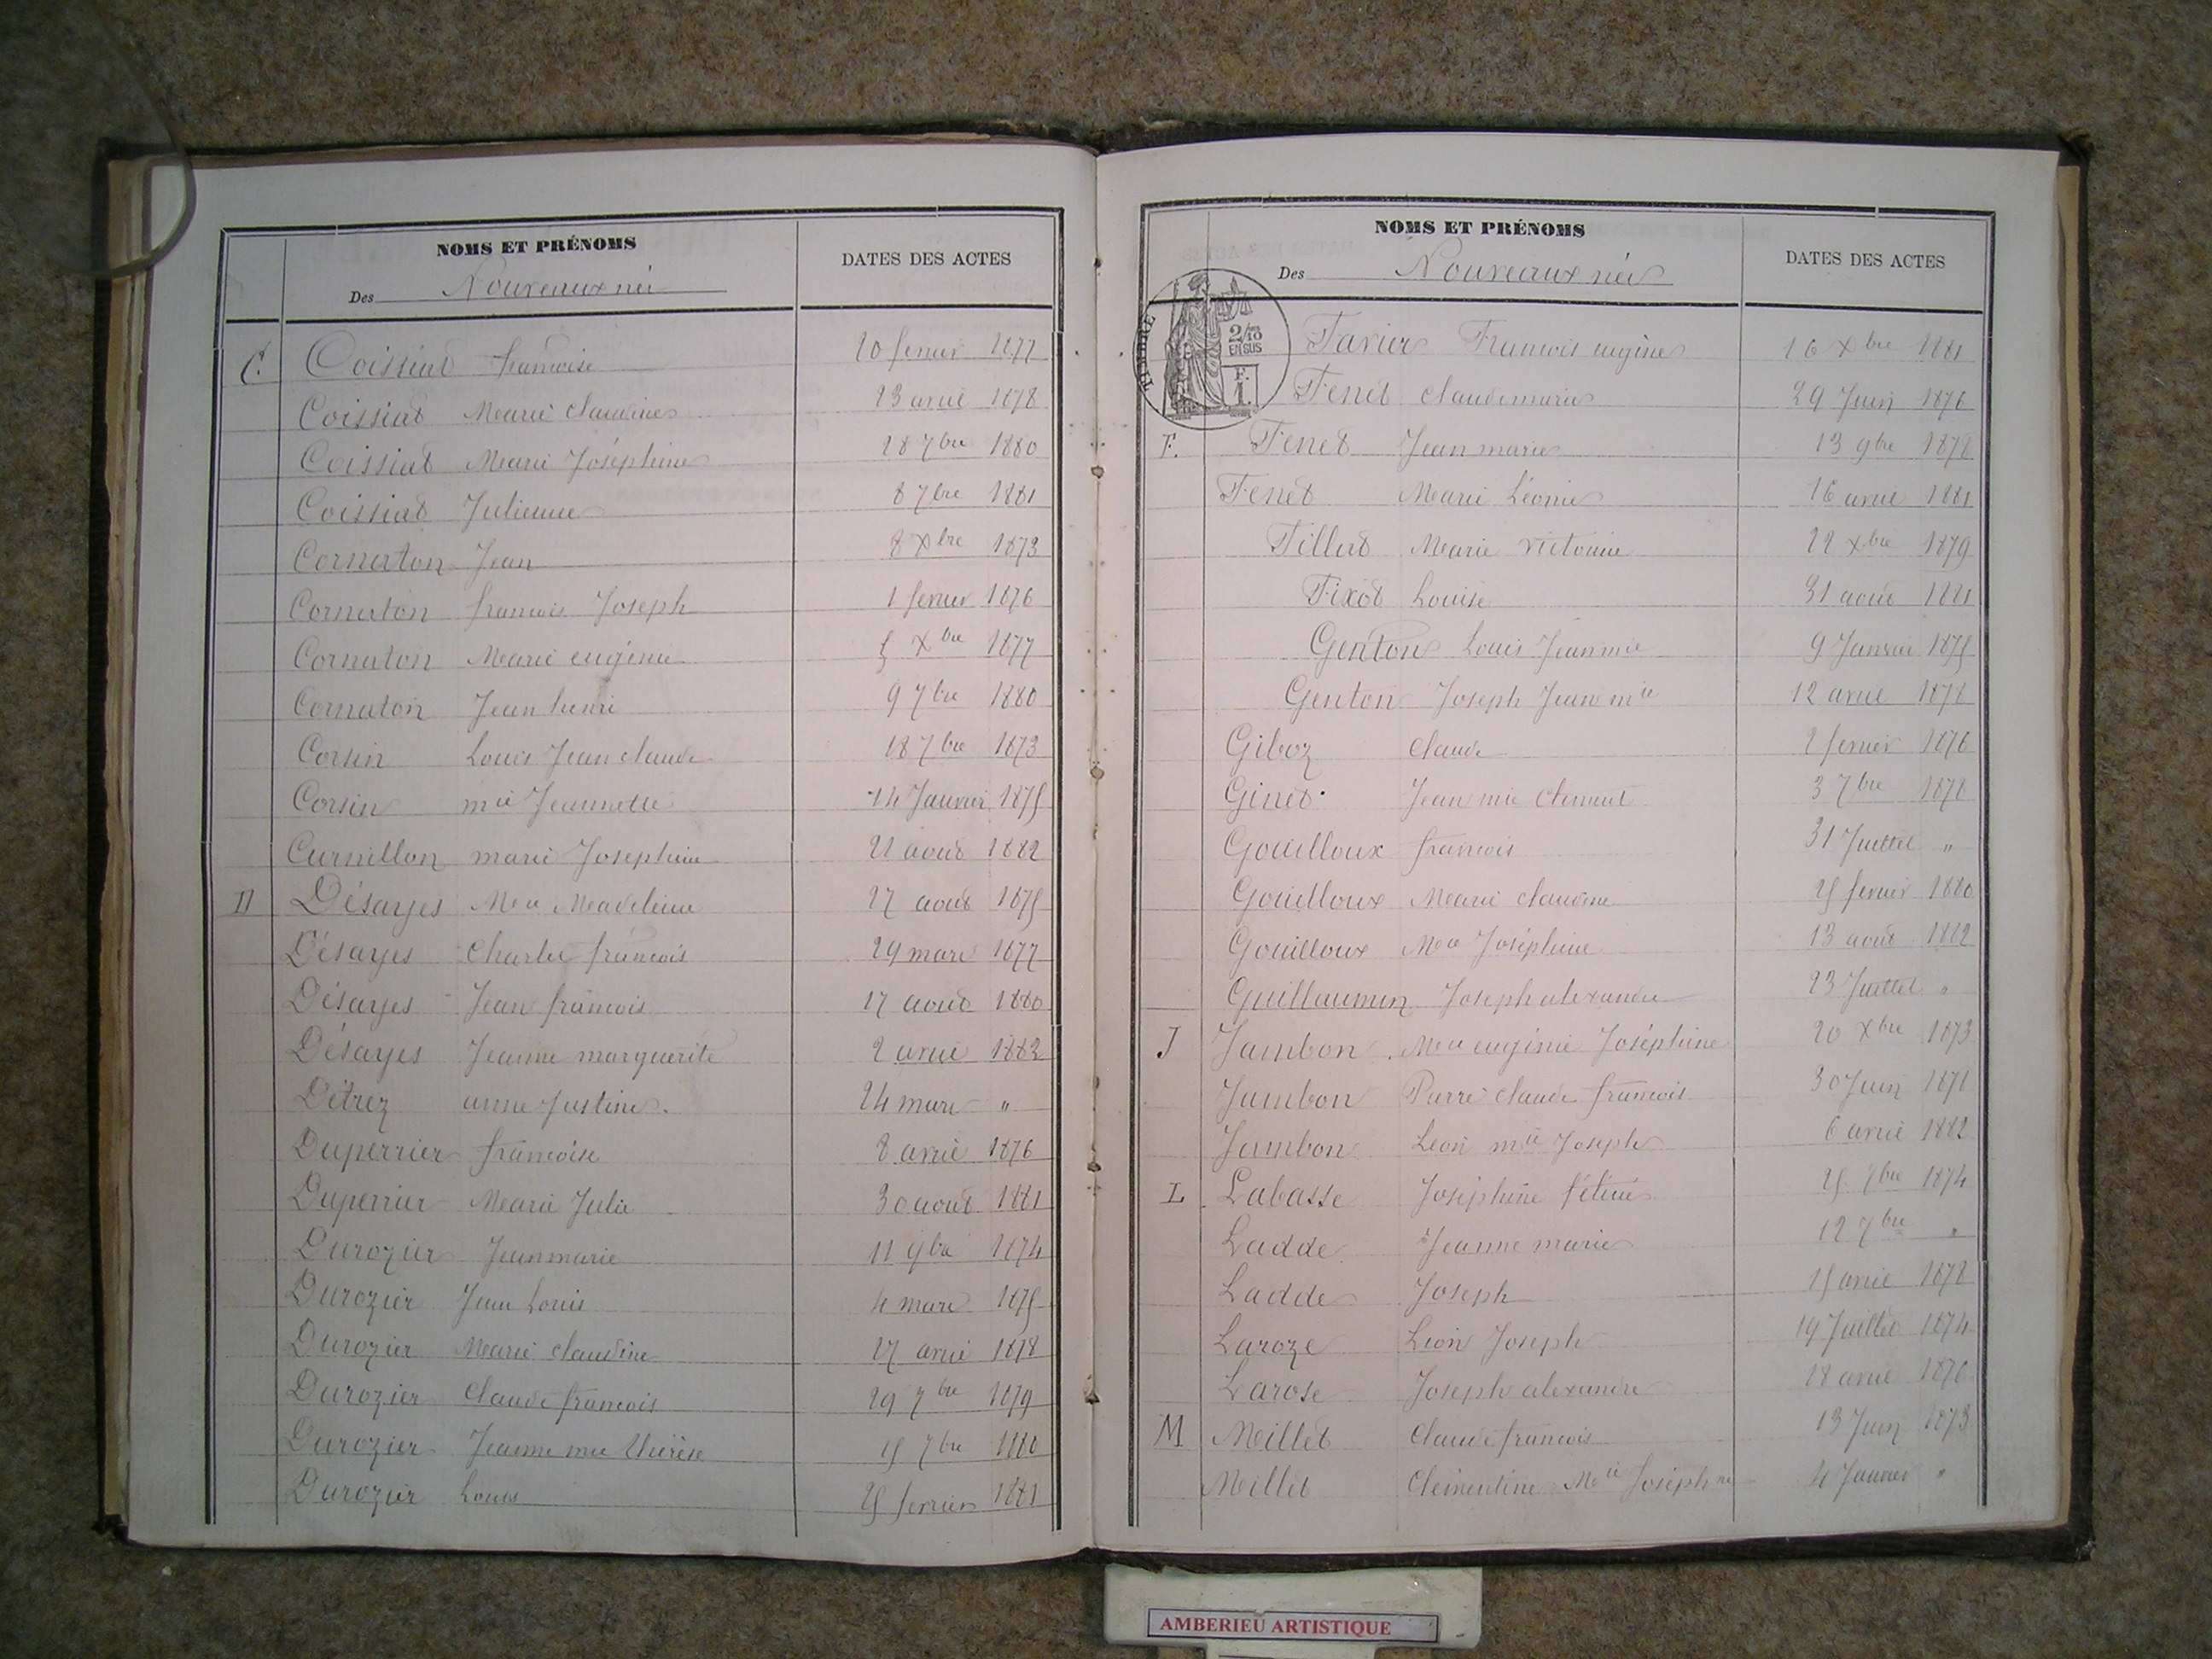 NOMS ET PRÉNOMS
Des Nouveaux néi
DATES DES ACTES
C. Coissiat francoise 20 fevrier 1877
Coissiat Marie claudine 23 avril 1878
Coissiat Marie Joséphine 28 7bre 1880
Coissiat Julienne 8 7bre 1881
Cornaton Jean 8 Xbre 1873
Cornaton francois Joseph 1 fevrier 1876
Cornaton Marie eugénie 5 Xbre 1877
Cornaton Jean henri 9 7bre 1880
Corsin Louis Jean claude 18 7bre 1873
Corsin mie Jeannette 14 Janvier 1875
Curnillon marie Josephine 21 aout 1882
D Désayes Mie Madeleine 27 aout 1875
Désayes Charles francois 29 mars 1877
Désayes Jean francois 17 aout 1880
Désayes Jeanne marguerite 2 avril 1882
Détrez anne Justine. 24 mars "
Duperrier francoise 8 avril 1876
Duperrier Marie Julie 30 aout 1881
Durozier Jeanmarie 11 9bre 1874
Durozier Jean Louis 4 mars 1875
Durozier Marie claudine 27 avril 1878
Durozier Claude francois 29 7bre 1879
Durozier Jeanne mie thérèse 15 7bre 1880
Durozier Louis 25 fevrier 1881
NOMS ET PRÉNOMS
Des Nouveaux néis
DATES DES ACTES
TIMBRE
2/10
EN SUS
F.
1.
Favier Francois eugène 16 Xbre 1881
Fenet claudemarie 29 Juin 1876
F. Fenet Jean marie 13 9bre 1878
Fenet Marie Léonie 16 avril 1881
Fillet Marie victorine 22 xbre 1879
Fixot Louise 31 aout 1881
Genton Louis Jeanmie 9 Janvier 1875
Genton Joseph Jean mie 12 avril 1878
Giboz claude 2 fevrier 1876
Ginet Jean mie Clement 3 7bre 1878
Gouilloux francois 31 Juillet "
Gouilloux Marie claudine 25 fevrier 1880
Gouilloux Mie Joséphine 13 aout 1882
Guillaumin Joseph alexandre 23 Juillet "
J Jambon Mie eugénie Joséphine 20 Xbre 1873
Jambon Pierre claude francois 30 Juin 1878
Jambon Leon mie Joseph 6 avril 1882
L Labasse Joséphine félicie 25 7bre 1874
Ladde Jeanne marie 12 7bre "
Ladde Joseph 15 avril 1878
Laroze Leon Joseph 19 Juillet 1874
Larose Joseph alexandre 18 avril 1876
M Meillet Claude francois 13 Juin 1873
Meillet Clémentine Mie Joséphine 4 Janvier "
AMBERIEU ARTISTIQUE